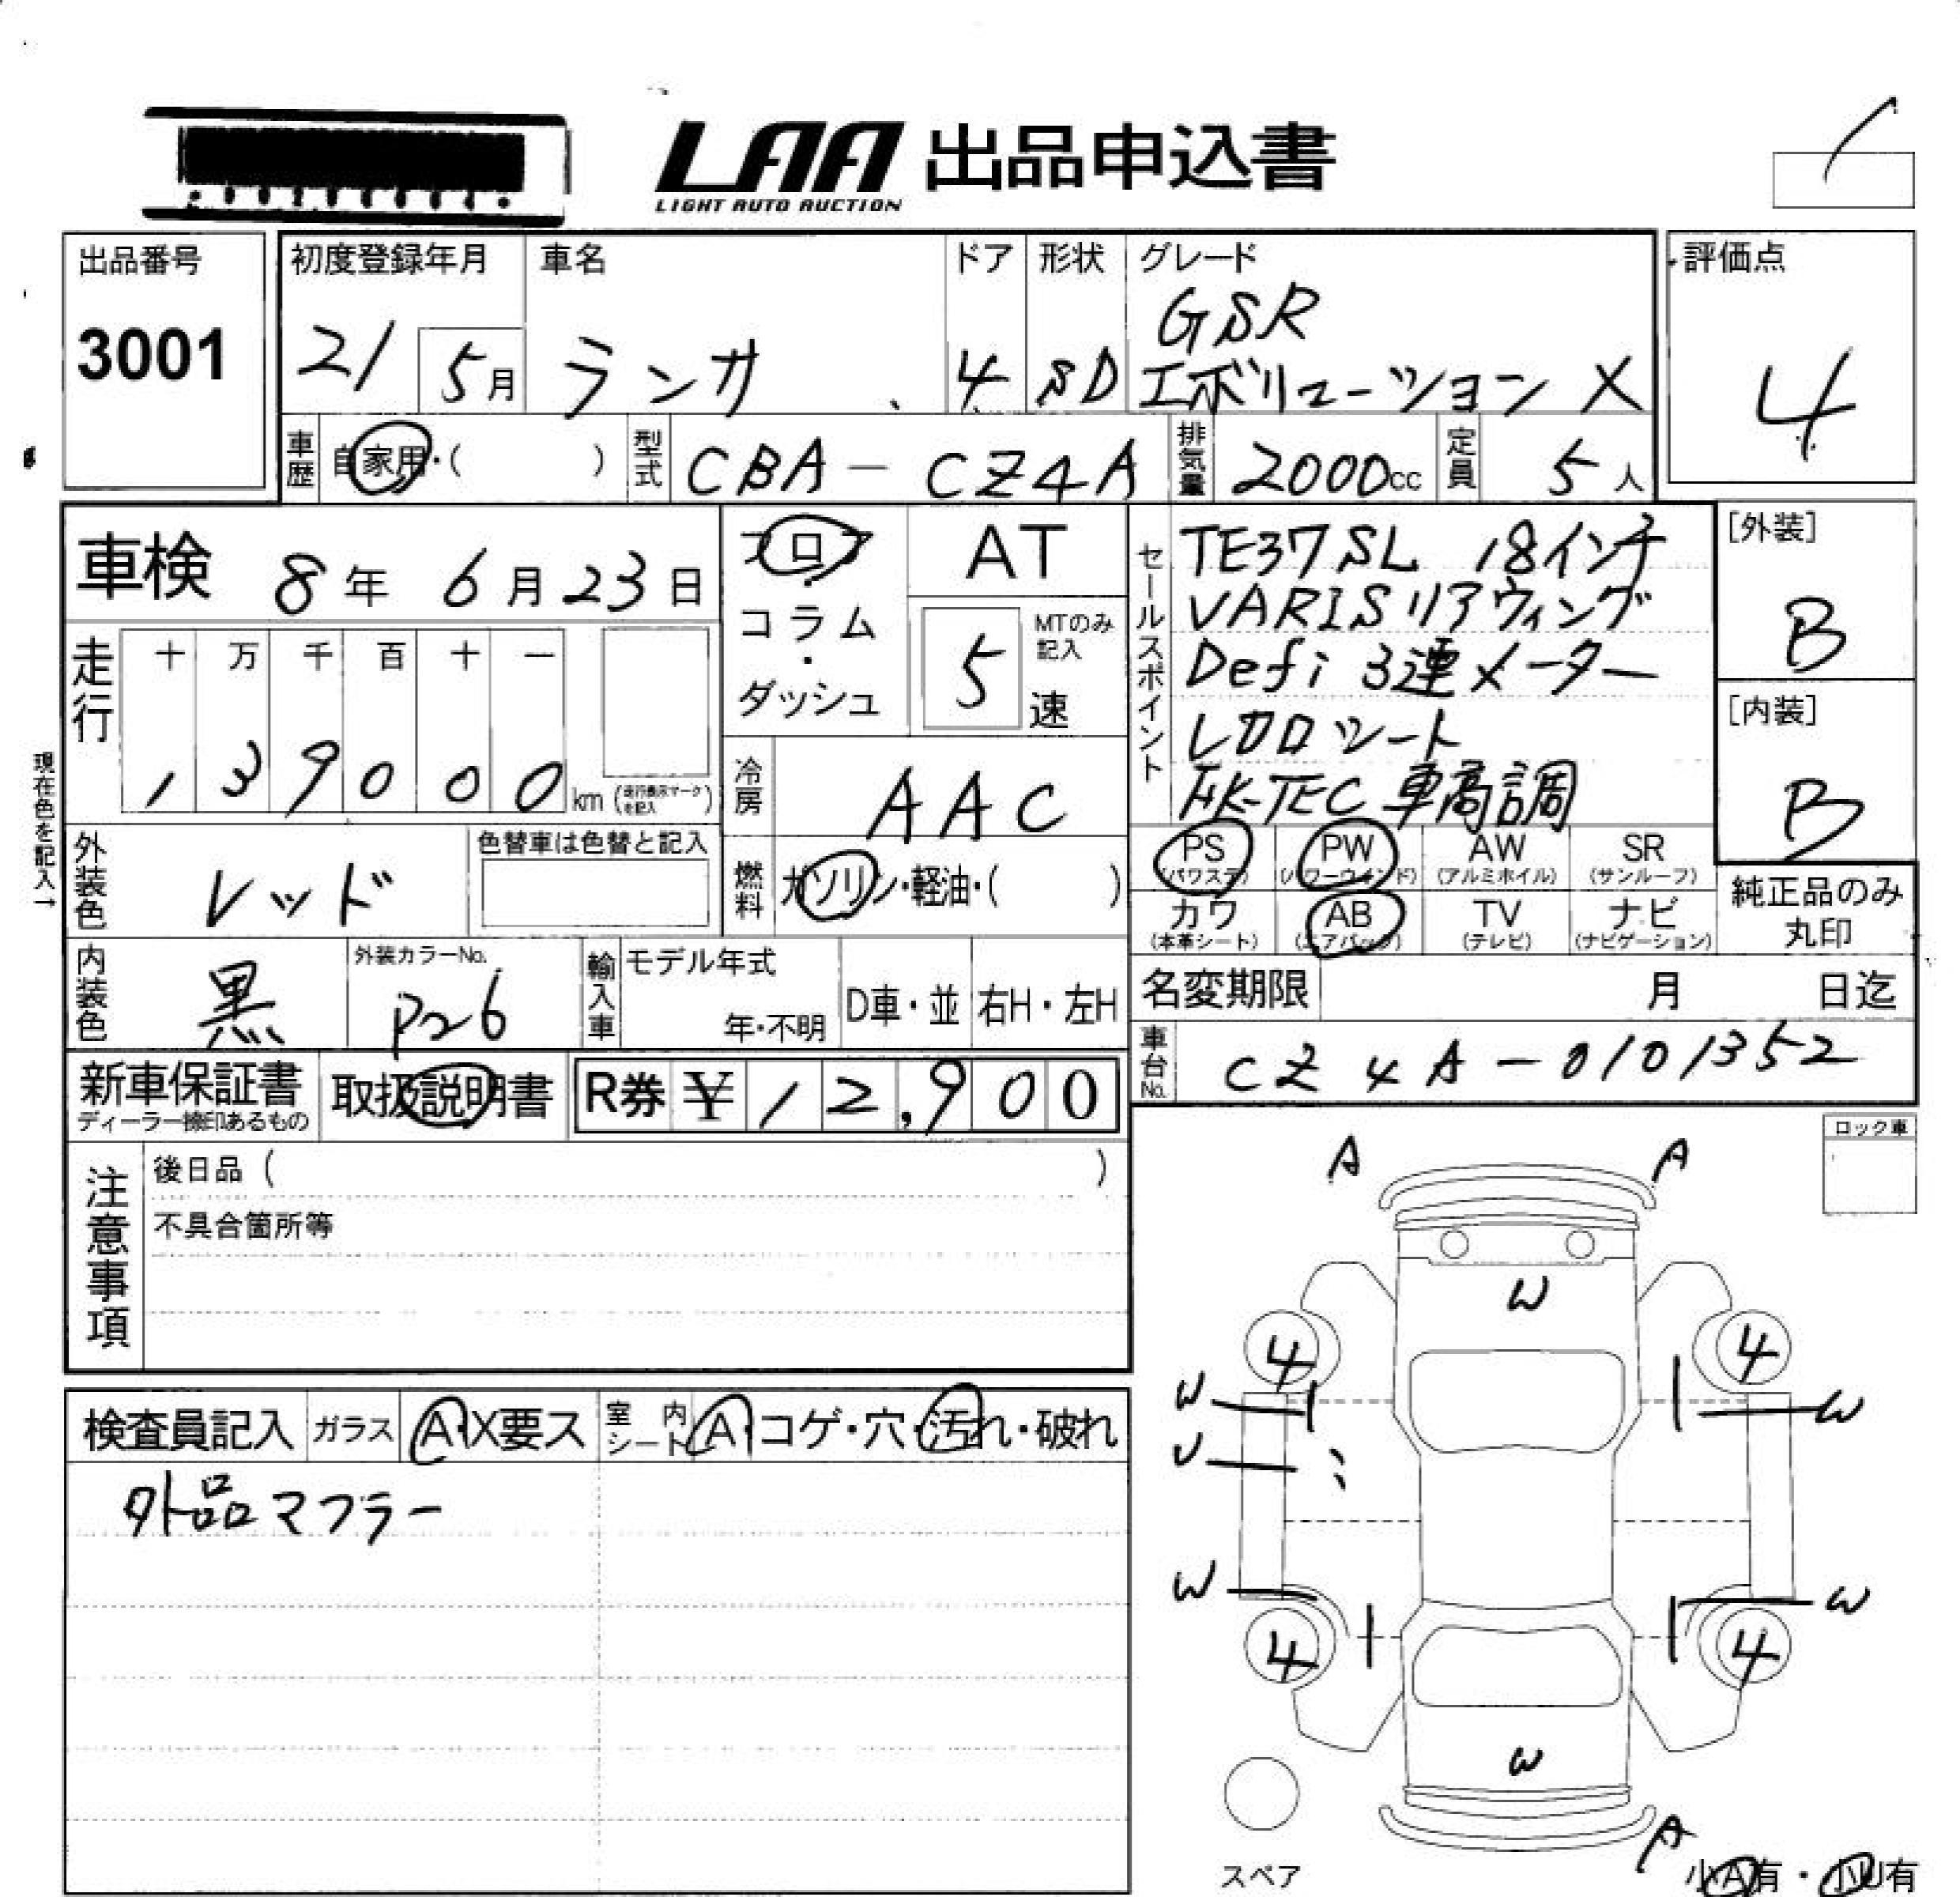 LAA 出品申込書
LIGHT AUTO AUCTION
出品番号
3001
初度登録年月
21 5月
車名
ランサ
ドア
4
形状
SD
グレード
GSR
エボリューション X
評価点
4
車歴 自家用・( )
型式 CBA-CZ4A
排気量 2000cc
定員 5人
車検 8年 6月 23日
フロア・コラム・ダッシュ
AT
5 MTのみ記入 速
セールスポイント
TE37SL 18インチ
VARISリアウィング
Defi 3連メーター
レカロシート
HK-TEC 車高調
[外装]
B
[内装]
B
走行
十 万 千 百 十 一
1 3 9 0 0 0 km (走行表示マークを記入)
現在色を記入→
冷房 AAC
外装色 レッド
色替車は色替と記入
燃料 ガソリン・軽油・( )
PS (パワステ) PW (パワーウインド) AW (アルミホイル) SR (サンルーフ)
カワ (本革シート) AB (エアバッグ) TV (テレビ) ナビ (ナビゲーション)
純正品のみ丸印
内装色 黒
外装カラーNo.
P26
輸入車 モデル年式
年・不明
D車・並 右H・左H
名変期限 月 日迄
車台No. CZ4A-0101352
新車保証書
ディーラー捺印あるもの
取扱説明書
R券 ¥12,900
注意事項
後日品 ( )
不具合箇所等
ロック車
検査員記入 ガラス A・X要ス 室内シート A・コゲ・穴・汚れ・破れ
外品マフラー
A A
W
4 4
W W
U
W W
4 4
W
A
スペア
小A有・小U有